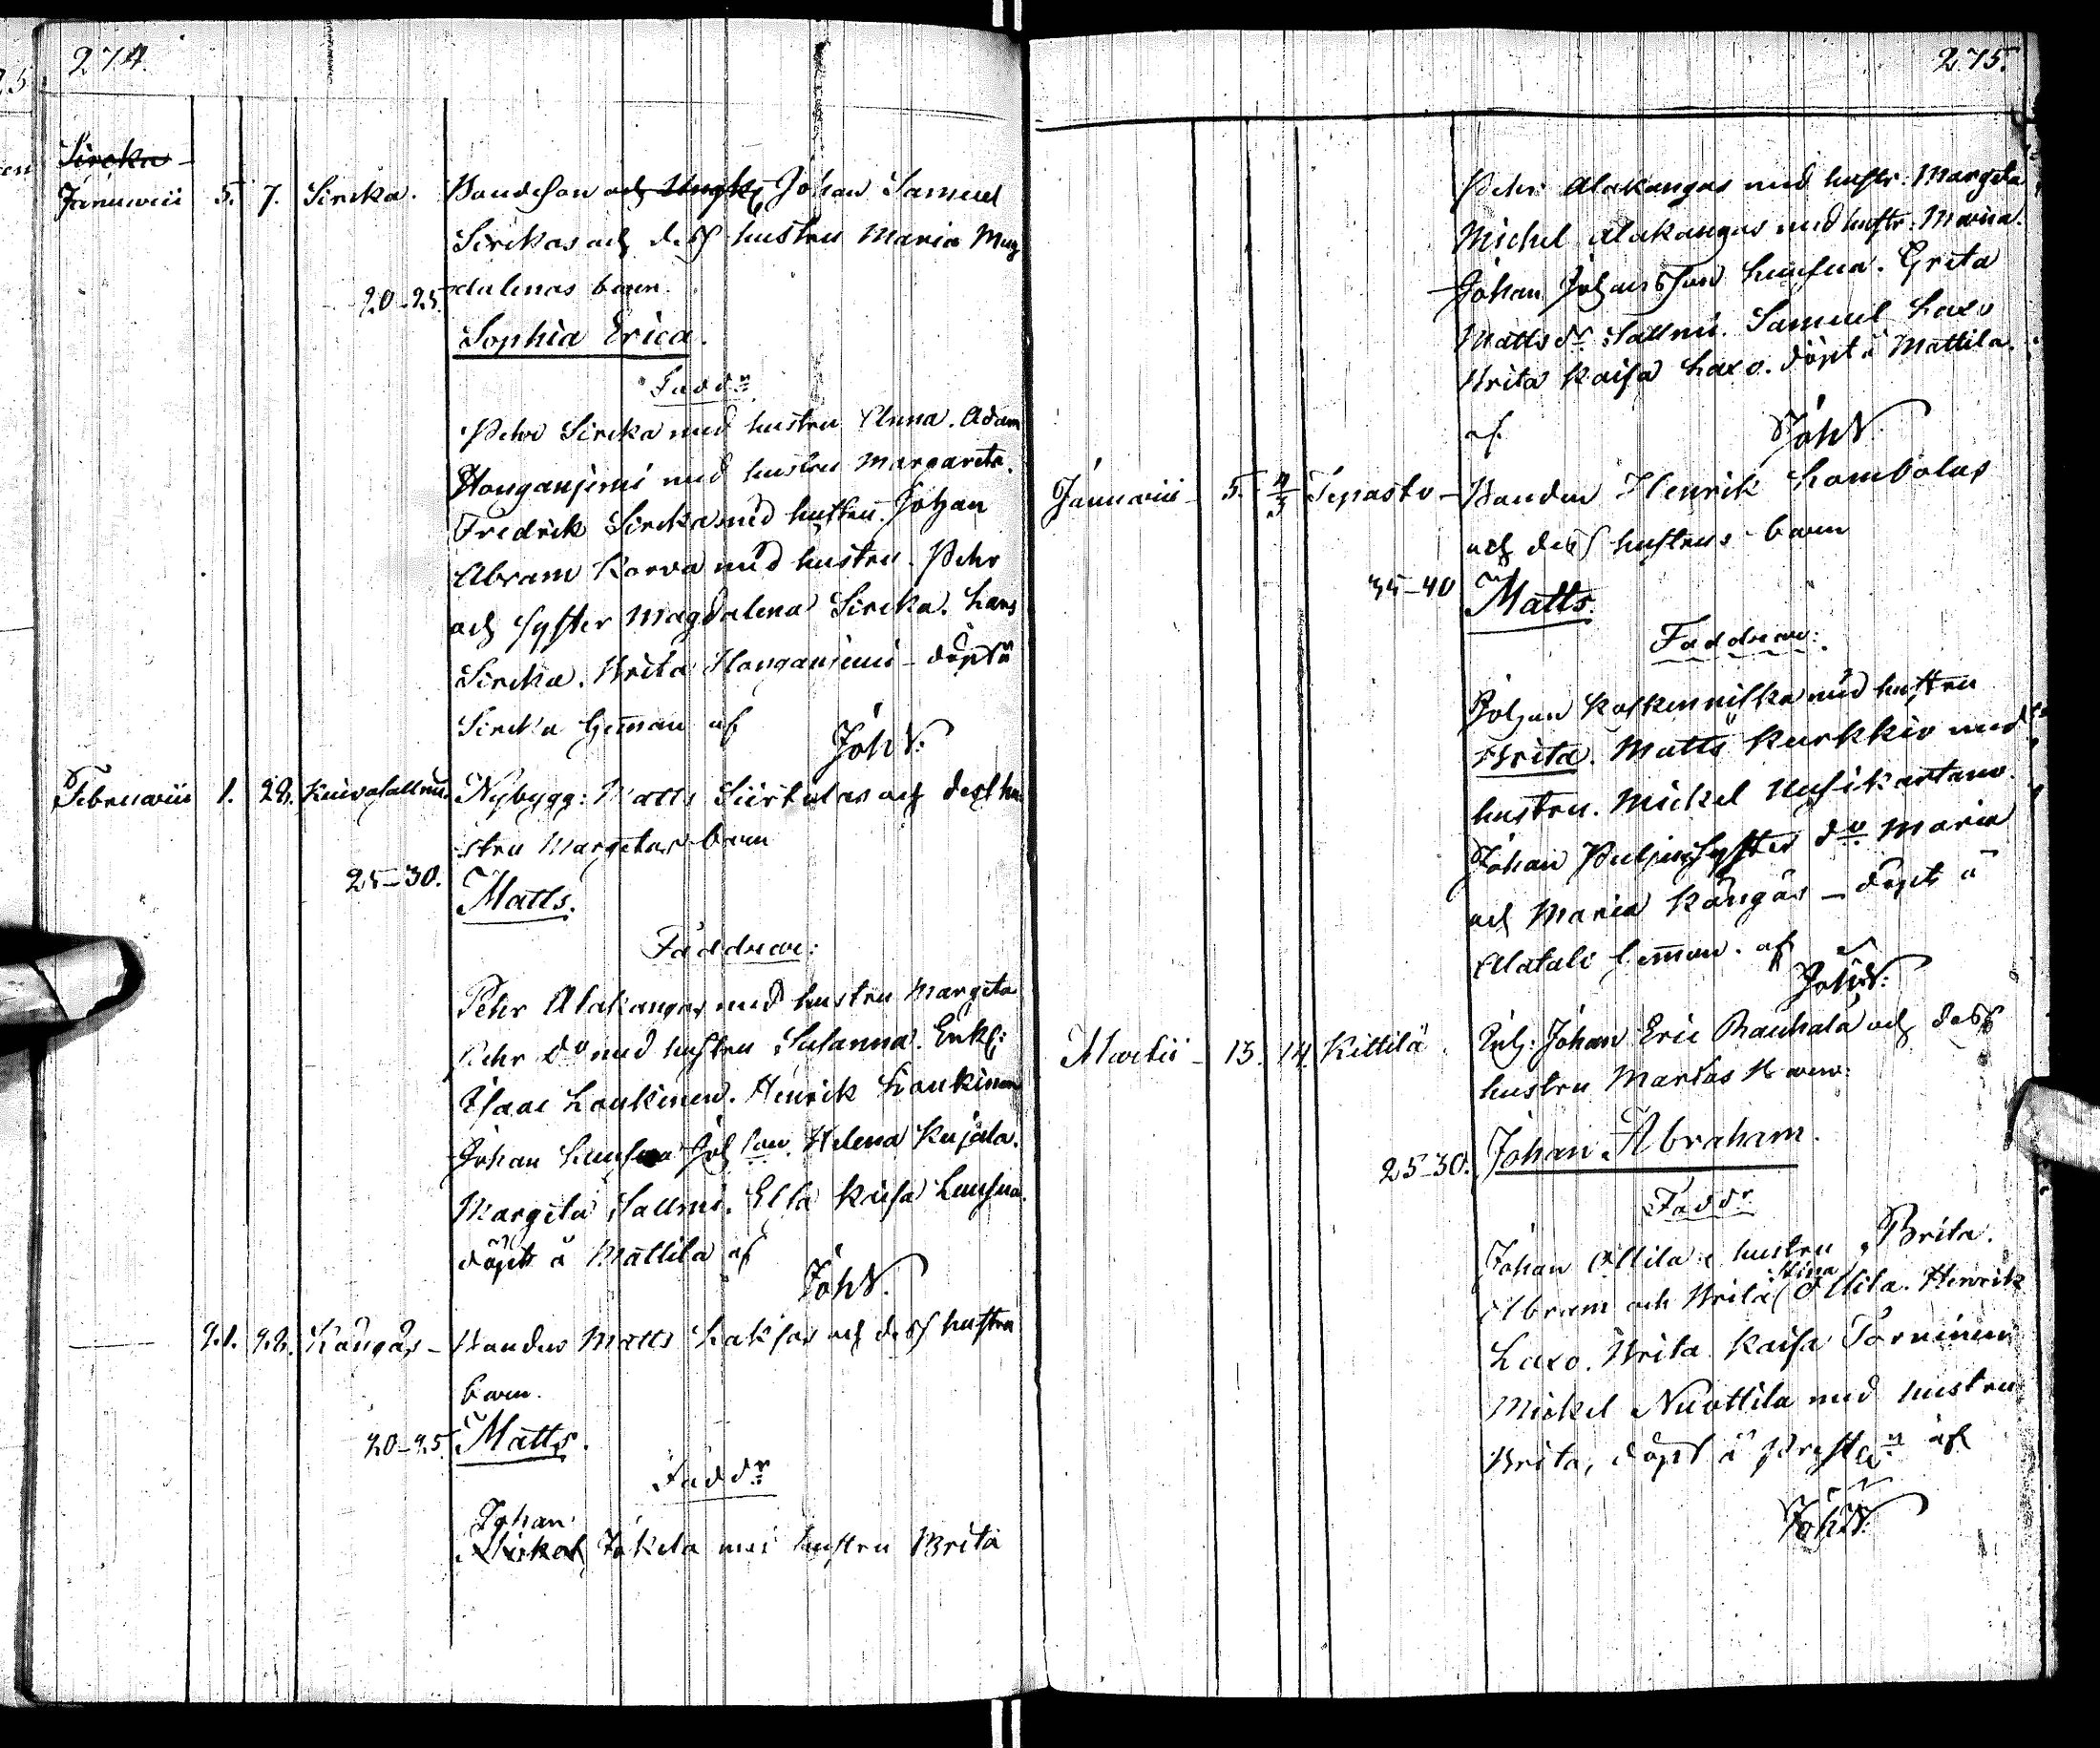 274.
Sircka
Januarii 5. 7. Sircka. Bondeson och Ungk. Johan Samuel
Sirckas och dess hustru Maria Mag
20-25. dalenas barn.
Sophia Erica.
Faddr
Pehr Sircka med hustru Anna. Adam
Honganjemi med hustru Margareta.
Fredrik Sircka med hustru. Johan
Abram Korva med hustru. Pehr
och syster Magdalena Sircka. Lars
Sircka. Brita Honganjemi - döpt å
Sircka heman af JohW.
Februarii 1. 28. Nybygg: Matts och dess hu
stru Margetas barn
25-30. Matts.
Faddrar:
Pehr Alakangas med hustru Margeta
Pehr do med hustru Susanna. Enkl:
Isaac Laukinen. Henrik Laukinen
Johan Joh son. Helena Kujala.
Margeta Sallmi. Elsa Kaisa
döpt å Mattila af
JohW.
21. 28. Kångås - Bonden Matts Laksos och dess hustru
barn.
20-25 Matts.
Faddr
Johan
Mickel Jokela med hustru Brita
275.
Pehr Alakangas med hustr: Margeta
Michel Alakangas med hustr: Maria.
Johan Johansson. Greta
Matts dr Sallmi. Samuel Laxo
Brita Kaisa Laxo. döpt å Mattila.
af. JohW
Januarii - 5. Tepasto - Bonden Henrik Lombolas
och dess hustrus barn
35-40 Matts.
Faddrar:
Johan med hustru
Brita. Matts Kurkkio med
hustru. Mickel Uusikartano.
Johan syster do Maria
och Maria Kångås - döpt å
Alatalo heman. af
JohW.
Martii - 13. 14. Kittilä. Inh: Johan Eric Rauhala och dess
hustru Marias Barn:
25-30. Johan Abraham.
Faddr
Johan Ollila & hustru Brita.
Stina
Abram och Brita Ollila. Henrik
Laxo. Brita Kaisa Torninen
Mickel Nuottila med hustru
Brita, döpt å af
JohW.